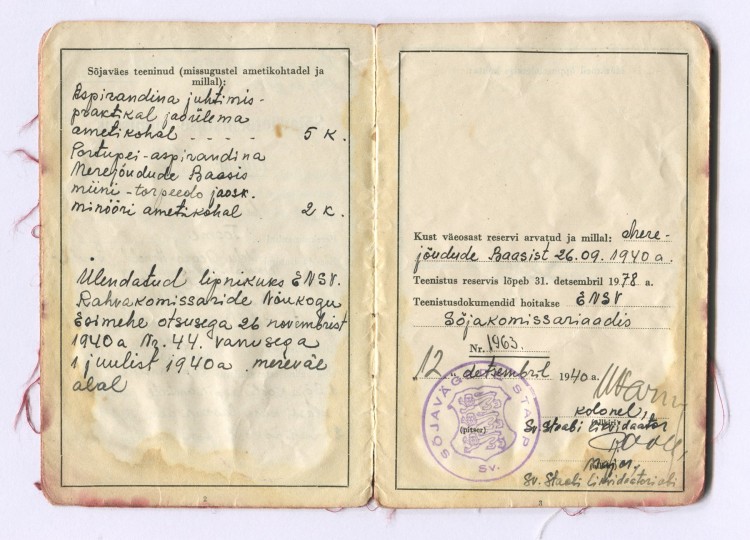 Sõjaväes teeninud (missugustel ametikohtadel ja
millal):
Aspirandina juhtimis-
praktikal jaoülema
ametikohal - - - - - 5 K.
Portupei-aspirandina
Merejõudude Baasis
miini-torpeedo jaosk.
minööri ametikohal 2 K.
Ülendatud lipnikuks ENSV.
Rahvakomissaride Nõukogu
Esimehe otsusega 26 novembrist
1940 a Nr. 44. vanusega
1 juulist 1940 a. mereväe
alal
2
Kust väeosast reservi arvatud ja millal: Mere-
jõudude Baasist 26.09.1940 a.
Teenistus reservis lõpeb 31. detsembril 1978 a.
Teenistusdokumendid hoitakse ENSV
Sõjakomissariaadis
Nr. 1963.
"12" detsembril 1940 a.
SÕJAVÄGEDE STAAP
Sv.
(pitser)
kolonel,
(allkiri)
Sv. Staabi Likvidaator
major,
Sv. Staabi Likvidaatori abi
3